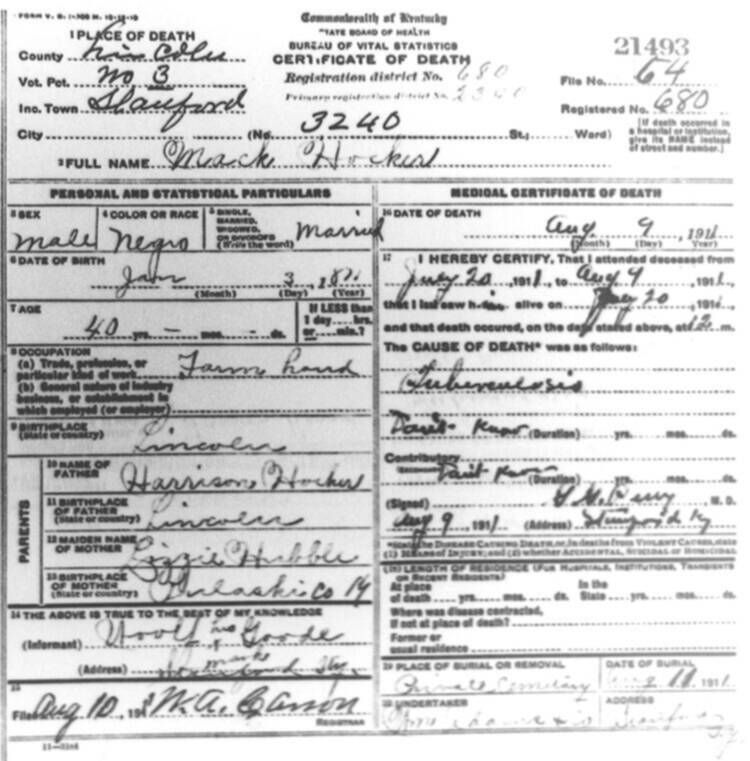 FORM V. S.
Commonwealth of Kentucky
STATE BOARD OF HEALTH
BUREAU OF VITAL STATISTICS
CERTIFICATE OF DEATH
1 PLACE OF DEATH
County Lincoln
Vot. Pct. No 3
Inc. Town Stanford
City (No. 3240 St.; Ward)
Registration district No. 680
Primary registration district No. 2340
21493
File No. 64
Registered No. 680
[If death occurred in a hospital or institution, give its NAME instead of street and number.]
2 FULL NAME Mack Hocker
PERSONAL AND STATISTICAL PARTICULARS
3 SEX
Male
4 COLOR OR RACE
Negro
5 SINGLE, MARRIED, WIDOWED, OR DIVORCED (Write the word)
Married
6 DATE OF BIRTH
Jan 3, 187
(Month) (Day) (Year)
7 AGE
40 yrs. - mos. - ds.
If LESS than 1 day....hrs. or....min.?
8 OCCUPATION
(a) Trade, profession, or particular kind of work
Farm hand
(b) General nature of industry business, or establishment in which employed (or employer)
9 BIRTHPLACE
(State or country)
Lincoln
PARENTS
10 NAME OF FATHER
Harrison Hocker
11 BIRTHPLACE OF FATHER
(State or country)
Lincoln
12 MAIDEN NAME OF MOTHER
Lizzie Hubble
13 BIRTHPLACE OF MOTHER
(State or country)
Pulaski Co Ky
14 THE ABOVE IS TRUE TO THE BEST OF MY KNOWLEDGE
(Informant) Woolf his Goode
mark
(Address) Ky.
15
Filed Aug 10, 191 W. A. Carson
REGISTRAR
MEDICAL CERTIFICATE OF DEATH
16 DATE OF DEATH
Aug 9, 1911
(Month) (Day) (Year)
17 I HEREBY CERTIFY, That I attended deceased from
July 20, 1911, to Aug 9, 1911,
that I last saw him alive on July 20, 191
and that death occured, on the date stated above, at 12 m.
The CAUSE OF DEATH* was as follows:
Tuberculosis
Don't Know (Duration) yrs. mos. ds.
Contributory
Don't Know (Duration) yrs. mos. ds.
(Signed) M. D.
Aug 9, 1911 (Address) Stanford Ky
*State the DISEASE CAUSING DEATH, or, in deaths from VIOLENT CAUSES, state (1) MEANS OF INJURY; and (2) whether ACCIDENTAL, SUICIDAL OR HOMICIDAL
18 LENGTH OF RESIDENCE (FOR HOSPITALS, INSTITUTIONS, TRANSIENTS OR RECENT RESIDENTS)
At place of death yrs. mos. ds. In the State yrs. mos. ds.
Where was disease contracted, if not at place of death?
Former or usual residence
19 PLACE OF BURIAL OR REMOVAL
Private Cemetery
DATE OF BURIAL
Aug 11, 1911
20 UNDERTAKER
ADDRESS